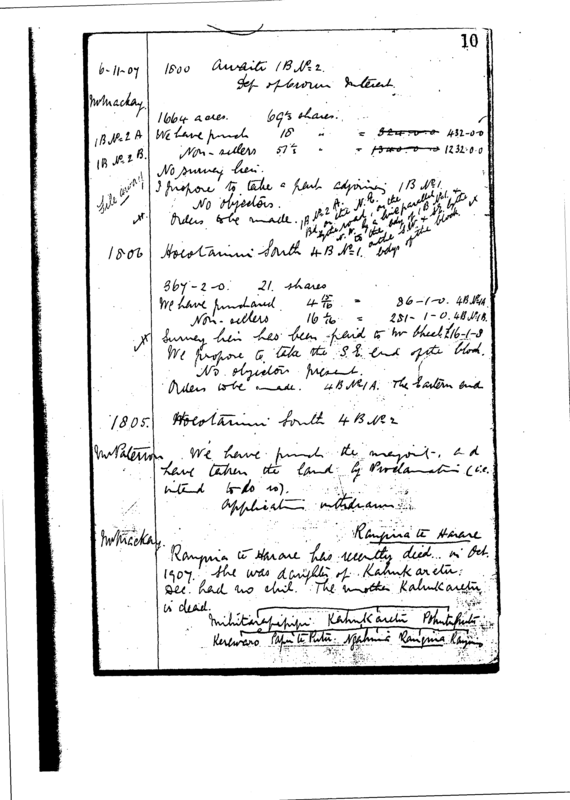 10
6-11-07 1800 Awaiti 1B No 2.
Def of Crown Interest.
Mr Mackay
1664 acres. 69⅓ shares.
1B No 2 A We have purch 18 " = 324-0-0 432-0-0
1B No 2 B. Non-sellers 51⅓ " = 1340-0-0 1232-0-0
No survey lien.
I propose to take a part adjoining 1B No 1.
File away
No objectors.
Orders to be made. 1B No 2 A.
Bd on the N.E.
by the road, on the
N.W. by a line parallel
to the bdy of 1B No 1
on the S.W. & S.E. by the
bdys of the block
1806 Hoeotainui South 4 B No 1.
367-2-0. 21. shares
We have purchased 4 15/16 = 86-1-0. 4B No 1A.
Non-sellers 16 1/16 = 281-1-0. 4B No 1B.
Survey lien has been paid to Mr £16-1-8
We propose to take the S.E. end of the block.
No objectors present.
Orders to be made. 4B No 1A. The Eastern end
1805. Hoeotainui South 4 B No 2
Mr Paterson We have purch the majority, and
have taken the land by Proclamation (i.e.
intend to do so).
Application withdrawn
Rangiria te Harare
Mr Mackay.
Rangiria te Harare has recently died in Oct.
1907. She was daughter of Kahukaretu.
Dec. had no chil. The mother Kahukaretu
is dead.
Kahukaretu
Kerewaro Rangiria